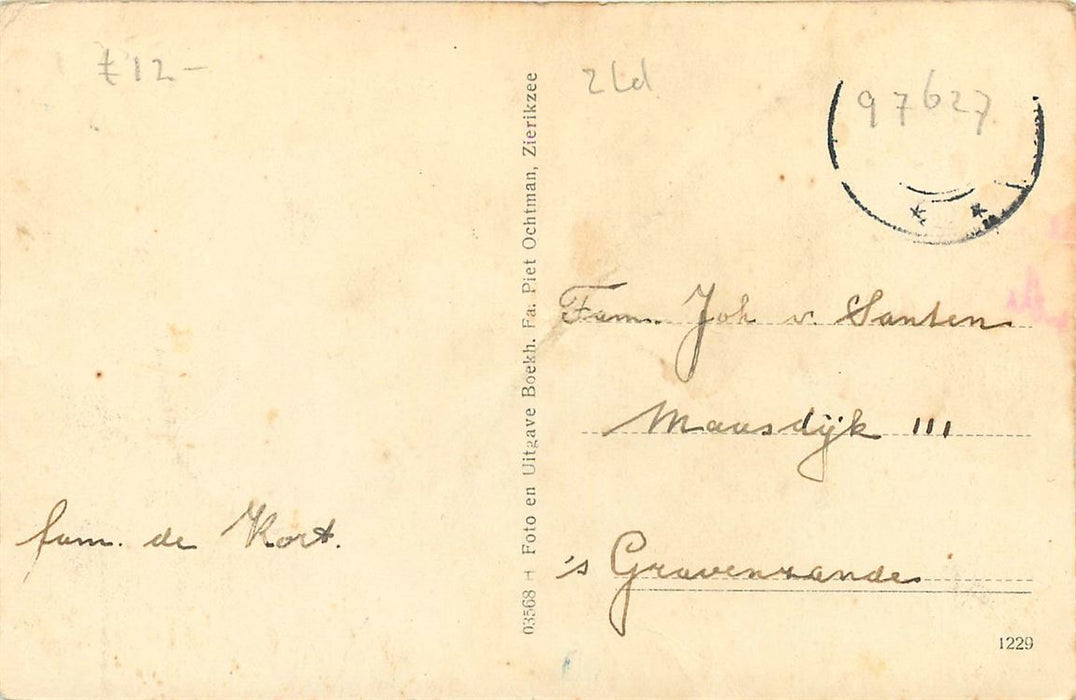 £12-
2Ld
97627
Fam. Joh v. Santen
Maasdijk 111
's Gravenzande
fam. de Kort.
03568 - Foto en Uitgave Boekh. Fa. Piet Ochtman, Zierikzee
1229